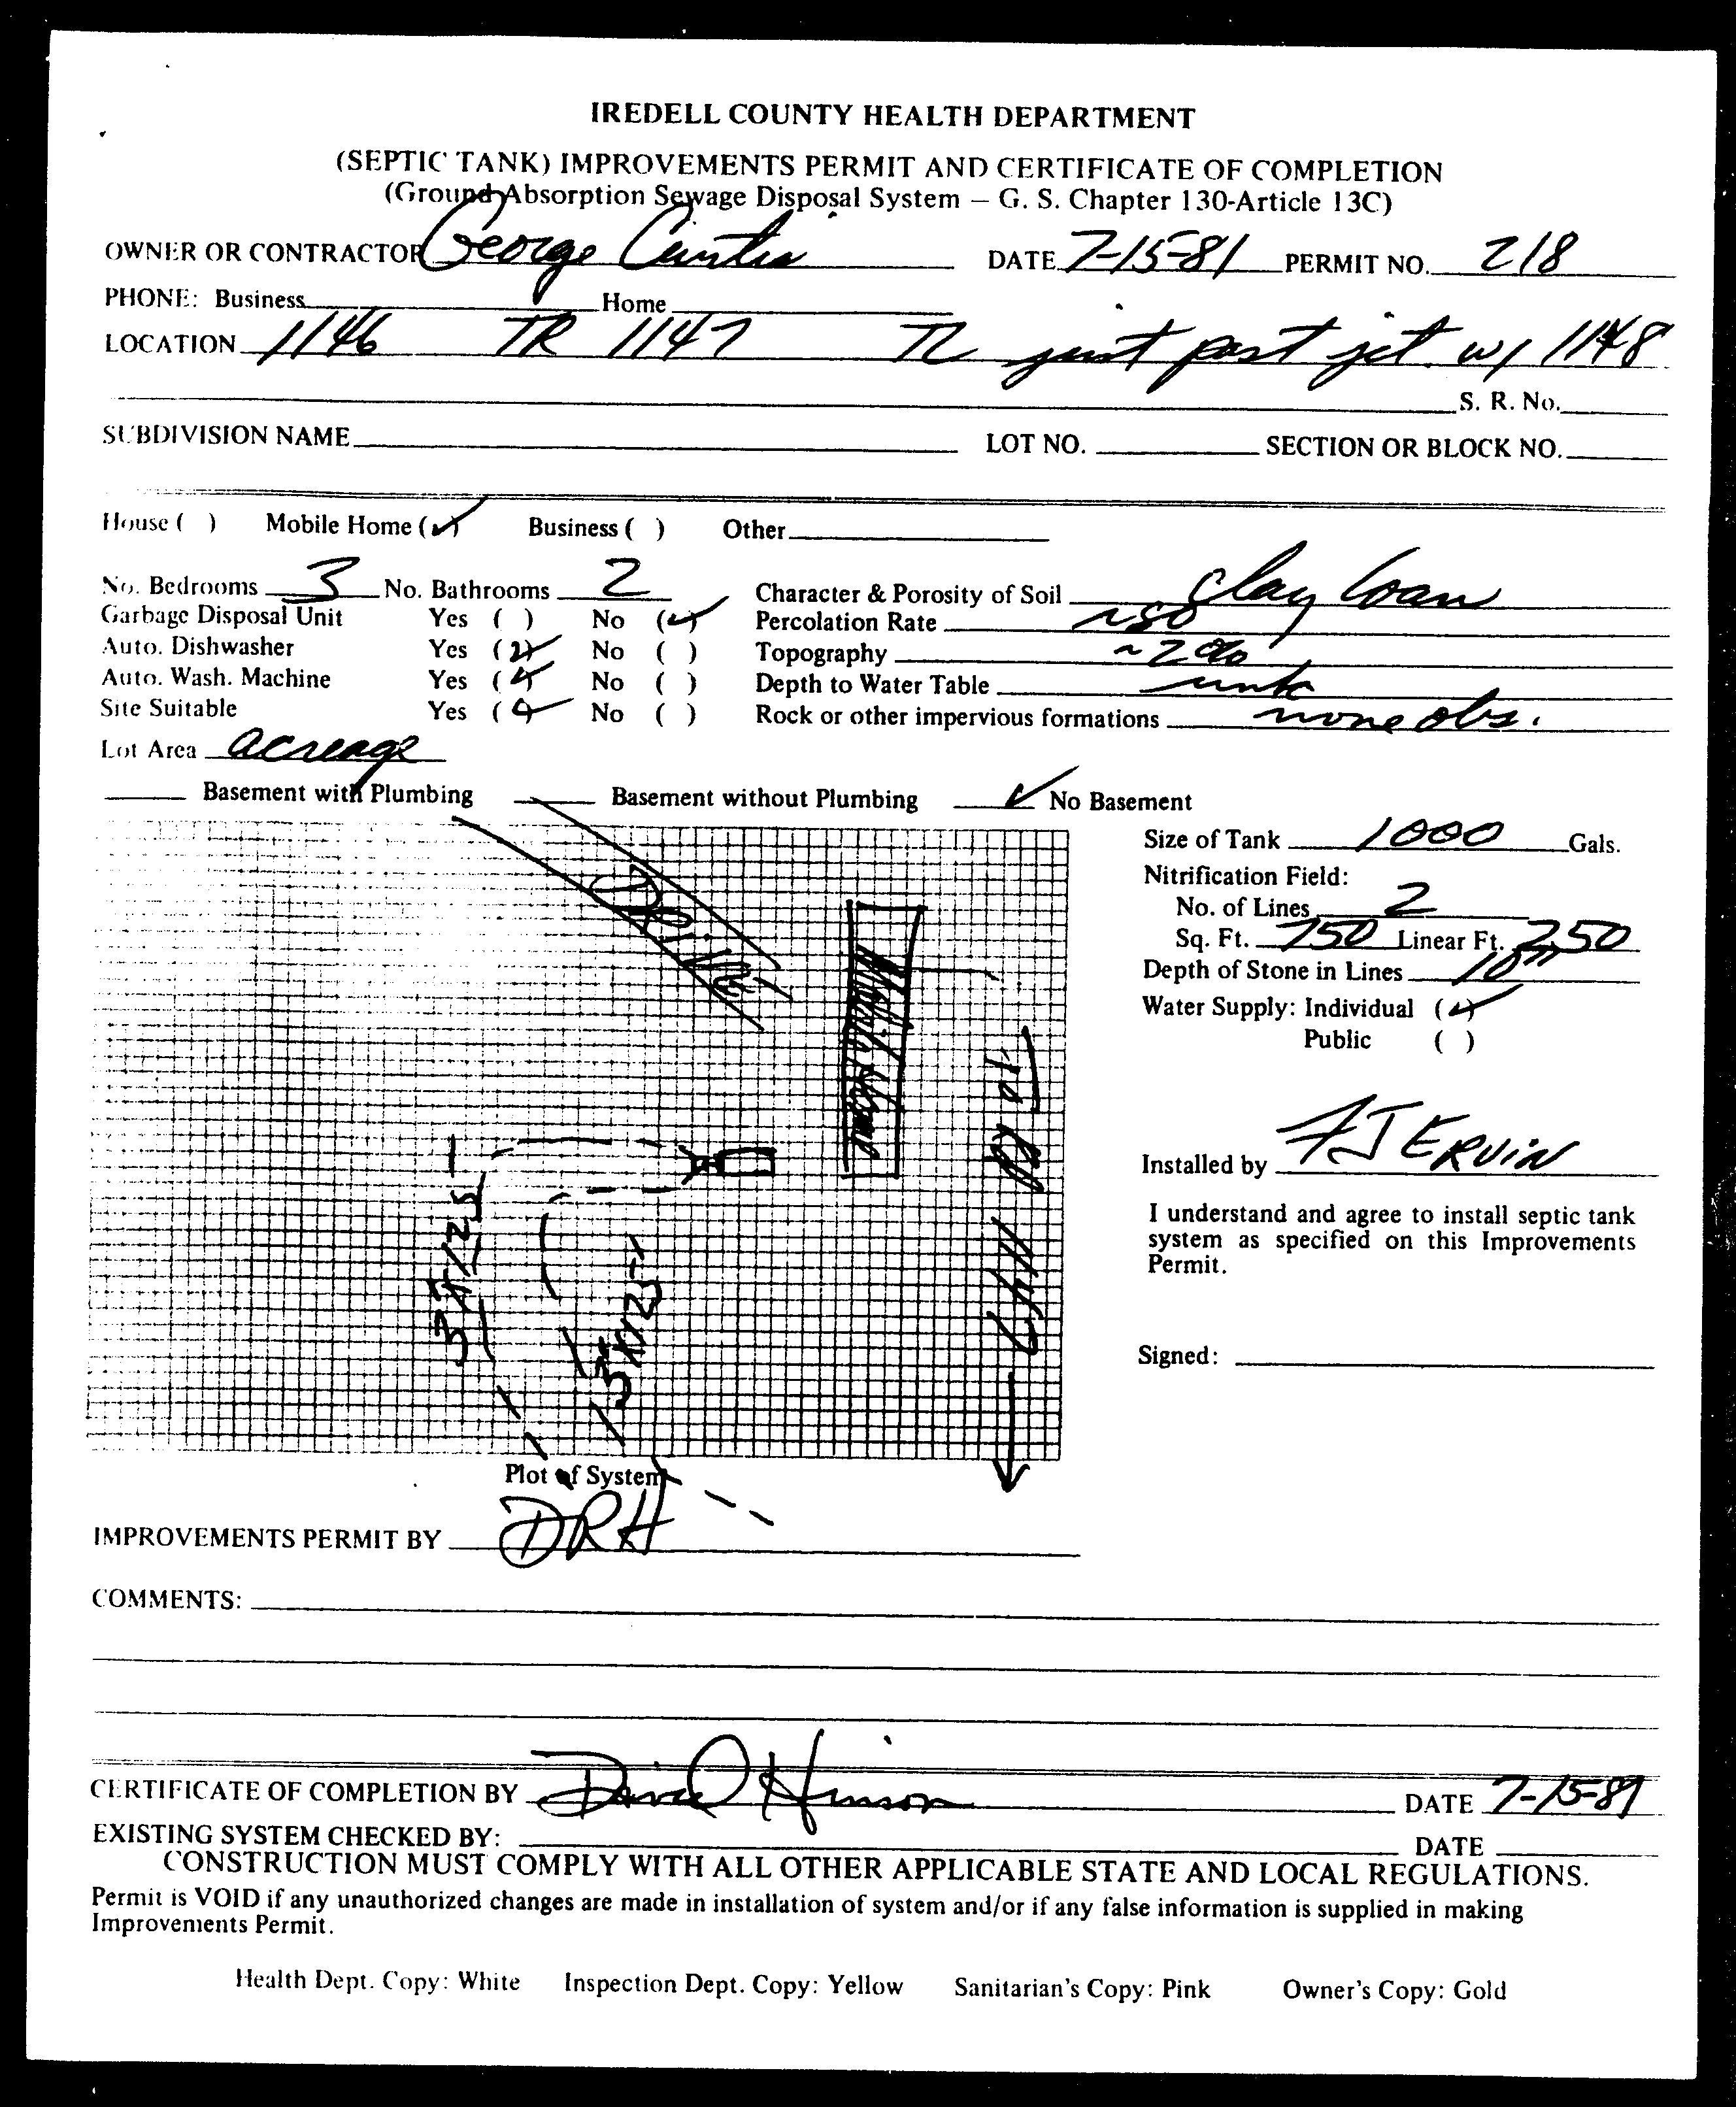 IREDELL COUNTY HEALTH DEPARTMENT
(SEPTIC TANK) IMPROVEMENTS PERMIT AND CERTIFICATE OF COMPLETION
(Ground Absorption Sewage Disposal System — G. S. Chapter 130-Article 13C)
OWNER OR CONTRACTOR George Curtis DATE 7-15-81 PERMIT NO. 218
PHONE: Business Home
LOCATION 1146 TR 1147 TL just past jct. w/ 1148
S. R. No.
SUBDIVISION NAME LOT NO. SECTION OR BLOCK NO.
House ( ) Mobile Home (✓) Business ( ) Other
No. Bedrooms 3 No. Bathrooms 2 Character & Porosity of Soil clay loam
Garbage Disposal Unit Yes ( ) No (✓) Percolation Rate ~50
Auto. Dishwasher Yes (✓) No ( ) Topography ~2%
Auto. Wash. Machine Yes (✓) No ( ) Depth to Water Table unk
Site Suitable Yes (✓) No ( ) Rock or other impervious formations none obs.
Lot Area acreage
Basement with Plumbing Basement without Plumbing ✓ No Basement
Size of Tank 1000 Gals.
Nitrification Field:
No. of Lines 2
Sq. Ft. 750 Linear Ft. 250
Depth of Stone in Lines 10"
Water Supply: Individual (✓)
Public ( )
Drive
Mobile Home
To RP 1147
3x125
3x125
Installed by FJ ERVIN
I understand and agree to install septic tank
system as specified on this Improvements
Permit.
Signed:
Plot of System
IMPROVEMENTS PERMIT BY DRH
COMMENTS:
CERTIFICATE OF COMPLETION BY David Hinson DATE 7-15-81
EXISTING SYSTEM CHECKED BY: DATE
CONSTRUCTION MUST COMPLY WITH ALL OTHER APPLICABLE STATE AND LOCAL REGULATIONS.
Permit is VOID if any unauthorized changes are made in installation of system and/or if any false information is supplied in making
Improvements Permit.
Health Dept. Copy: White Inspection Dept. Copy: Yellow Sanitarian's Copy: Pink Owner's Copy: Gold